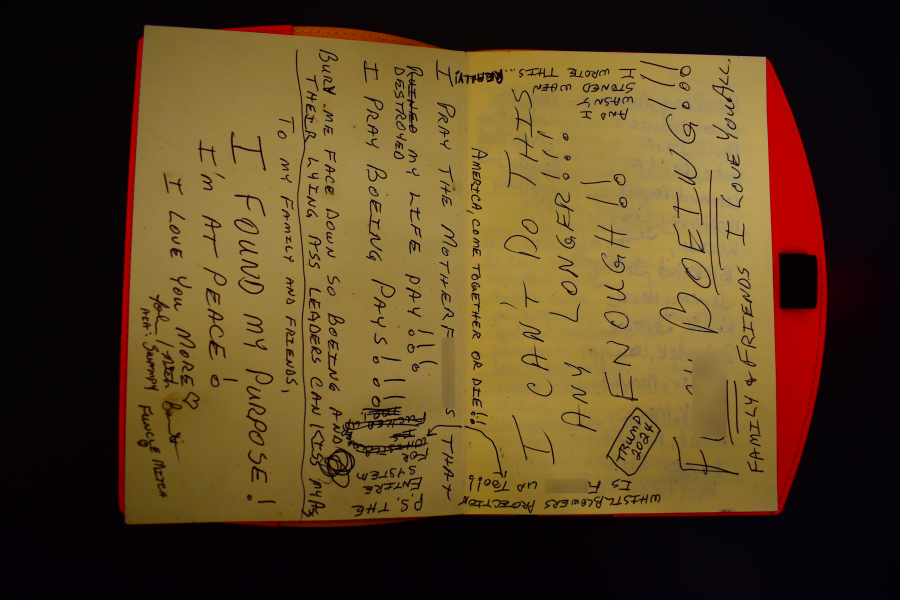 I CAN'T DO THIS
ANY LONGER!!!
ENOUGH!!
F BOEING!!!
FAMILY & FRIENDS I LOVE YOU ALL.
AND I
WASN'T
STONED WHEN
I WROTE THIS... REALLY!
TRUMP
2024
AMERICA, COME TOGETHER OR DIE!!
I PRAY THE MOTHERF S THAT
RUINED MY LIFE PAY!!!
DESTROYED
I PRAY BOEING PAYS!!!
BURY ME FACE DOWN SO BOEING AND
THEIR LYING ASS LEADERS CAN KISS MY ASS
TO MY FAMILY AND FRIENDS,
I FOUND MY PURPOSE!
I'M AT PEACE!
I LOVE YOU MORE♡
AKA: SWAMPY FUNCLE MITCH
P.S. THE
ENTIRE
SYSTEM
FOR
WHISTLEBLOWERS PROTECTION
IS F UP TOO!!